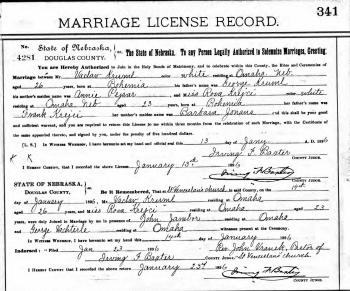 341
MARRIAGE LICENSE RECORD.
No. 4281 State of Nebraska, DOUGLAS COUNTY. ss. The State of Nebraska. To any Person Legally Authorized to Solemnize Marriages, Greeting.
You are Hereby Authorized to Join in the Holy Bonds of Matrimony, and to celebrate within this County, the Rites and Ceremonies of
Marriage between Mr Vaclav Kruml color white residing at Omaha Neb
aged 26 born at Bohemia his father's name was George Kruml and
his mother's maiden name was Annie Pejsar and Miss Rosa Krejci color white
residing at Omaha Neb aged 23 years, born at Bohemia her father's name was
Frank Krejci and her mother's maiden name was Barbara and this shall be your
good and sufficient warrant, and you are required to return this License to me within three months from the celebration of such Marriage, with the Certificate of
the same appended thereto, and signed by you, under the penalty of five hundred dollars.
[L. S.] In Witness Whereof, I have hereunto set my hand and official seal this 13 day of Jany A. D. 1896
Irving F. Baxter
COUNTY JUDGE.
I Hereby Certify, that I recorded the above License January 13th 1896
Irving F. Baxter
COUNTY JUDGE.
STATE OF NEBRASKA, DOUGLAS COUNTY. ss. Be it Remembered, That at St Wenceslaus church in said County, on the 14th
day of January 1896, Mr Vaclav Kruml residing at Omaha
aged 26 years, and Miss Rosa Krejci residing at Omaha aged 23
years, were duly Joined in Marriage by me in presence of John residing at Omaha
and George residing at Omaha witnesses present at the Ceremony.
In Witness Whereof, I have hereunto set my hand this 14th day of January 1896
Indorsed: Filed Jan 23 1896 Rev John Vranek, Pastor of
Irving F Baxter St Wenceslaus church
COUNTY JUDGE.
I Hereby Certify that I recorded the above Return January 23d 1896
Irving F. Baxter
COUNTY JUDGE.